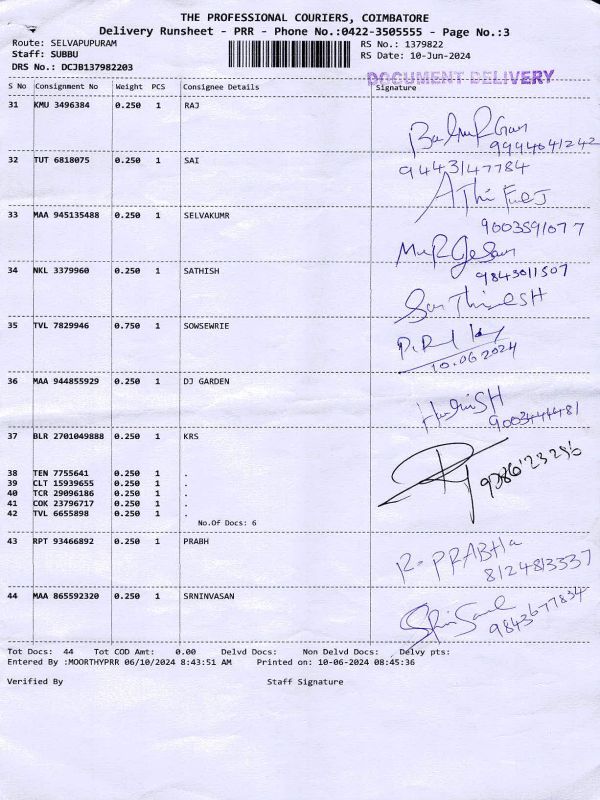 THE PROFESSIONAL COURIERS, COIMBATORE
Delivery Runsheet - PRR - Phone No.:0422-3505555 - Page No.:3
Route: SELVAPUPURAM RS No.: 1379822
Staff: SUBBU RS Date: 10-Jun-2024
DRS No.: DCJB137982203
DOCUMENT DELIVERY
S No Consignment No Weight PCS Consignee Details Signature
31 KMU 3496384 0.250 1 RAJ
9994641242
32 TUT 6818075 0.250 1 SAI
9443147784
33 MAA 945135488 0.250 1 SELVAKUMR
9003591077
34 NKL 3379960 0.250 1 SATHISH
9843011507
35 TVL 7829946 0.750 1 SOWSEWRIE
10.06.2024
36 MAA 944855929 0.250 1 DJ GARDEN
9003444481
37 BLR 2701049888 0.250 1 KRS
38 TEN 7755641 0.250 1 .
39 CLT 15939655 0.250 1 .
40 TCR 29096186 0.250 1 .
41 COK 23796717 0.250 1 .
42 TVL 6655898 0.250 1 .
No.Of Docs: 6
43 RPT 93466892 0.250 1 PRABH
R. PRABHa
8124813337
44 MAA 865592320 0.250 1 SRNINVASAN
9843677834
Tot Docs: 44 Tot COD Amt: 0.00 Delvd Docs: Non Delvd Docs: Delvy pts:
Entered By :MOORTHYPRR 06/10/2024 8:43:51 AM Printed on: 10-06-2024 08:45:36
Verified By Staff Signature